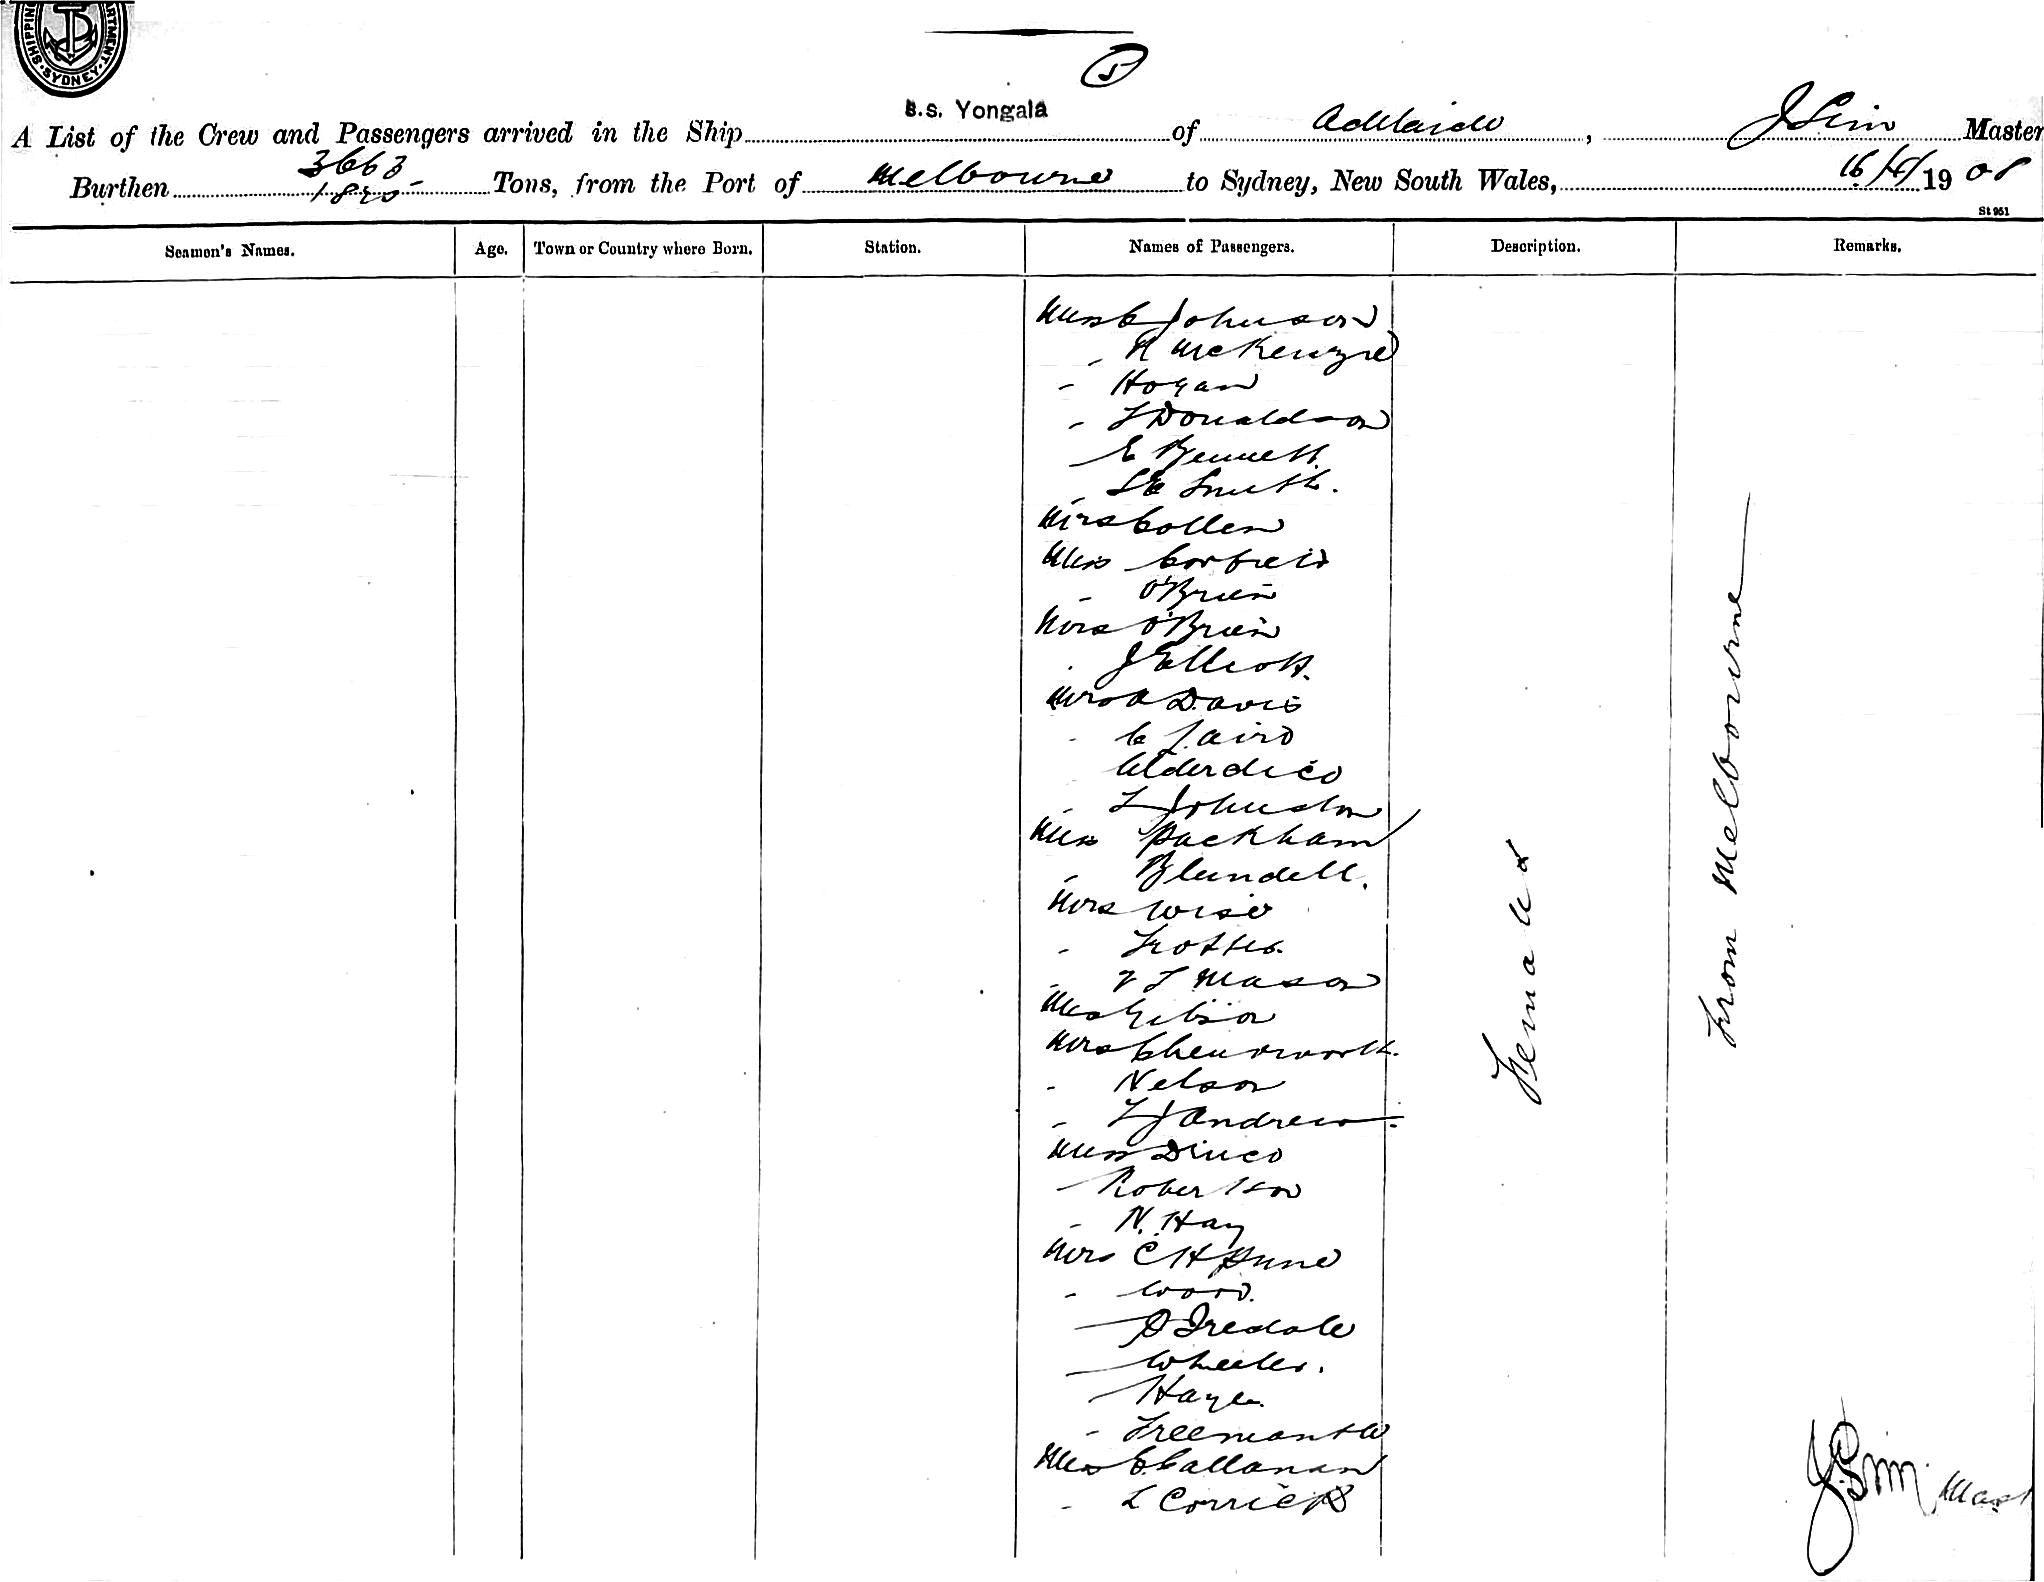 SHIPPING DEPARTMENT SYDNEY
5
A List of the Crew and Passengers arrived in the Ship s.s. Yongala of Adelaide, J Sim Master
3663
Burthen 1825 Tons, from the Port of Melbourne to Sydney, New South Wales, 16/4/1908
St 951
Seamen's Names. Age. Town or Country where Born. Station. Names of Passengers. Description. Remarks.
Miss C Johnson
" R McKenzie
" Hogan
" L Donaldson
E Bennett
" S E Smith.
Mrs Collen
Miss Corfield
" O'Brien
Mrs O'Brien
" J Elliott.
Mrs A Davis
" C Laird
Alderdice
" L Johnston
Miss Packham
" Blundell.
Mrs Wise
" Trotter.
" Mason
Miss Gibson
Mrs Chenoworth.
" Nelson
" L J Andrew.
Miss Dince
" Robertson
" N. Hay
Mrs C H Hune
" Wood.
Iredale
Wheeler.
Hayle
" Freemantle
Miss C. Callanan
" L Corrick
Females
From Melbourne
J. Sim Mast